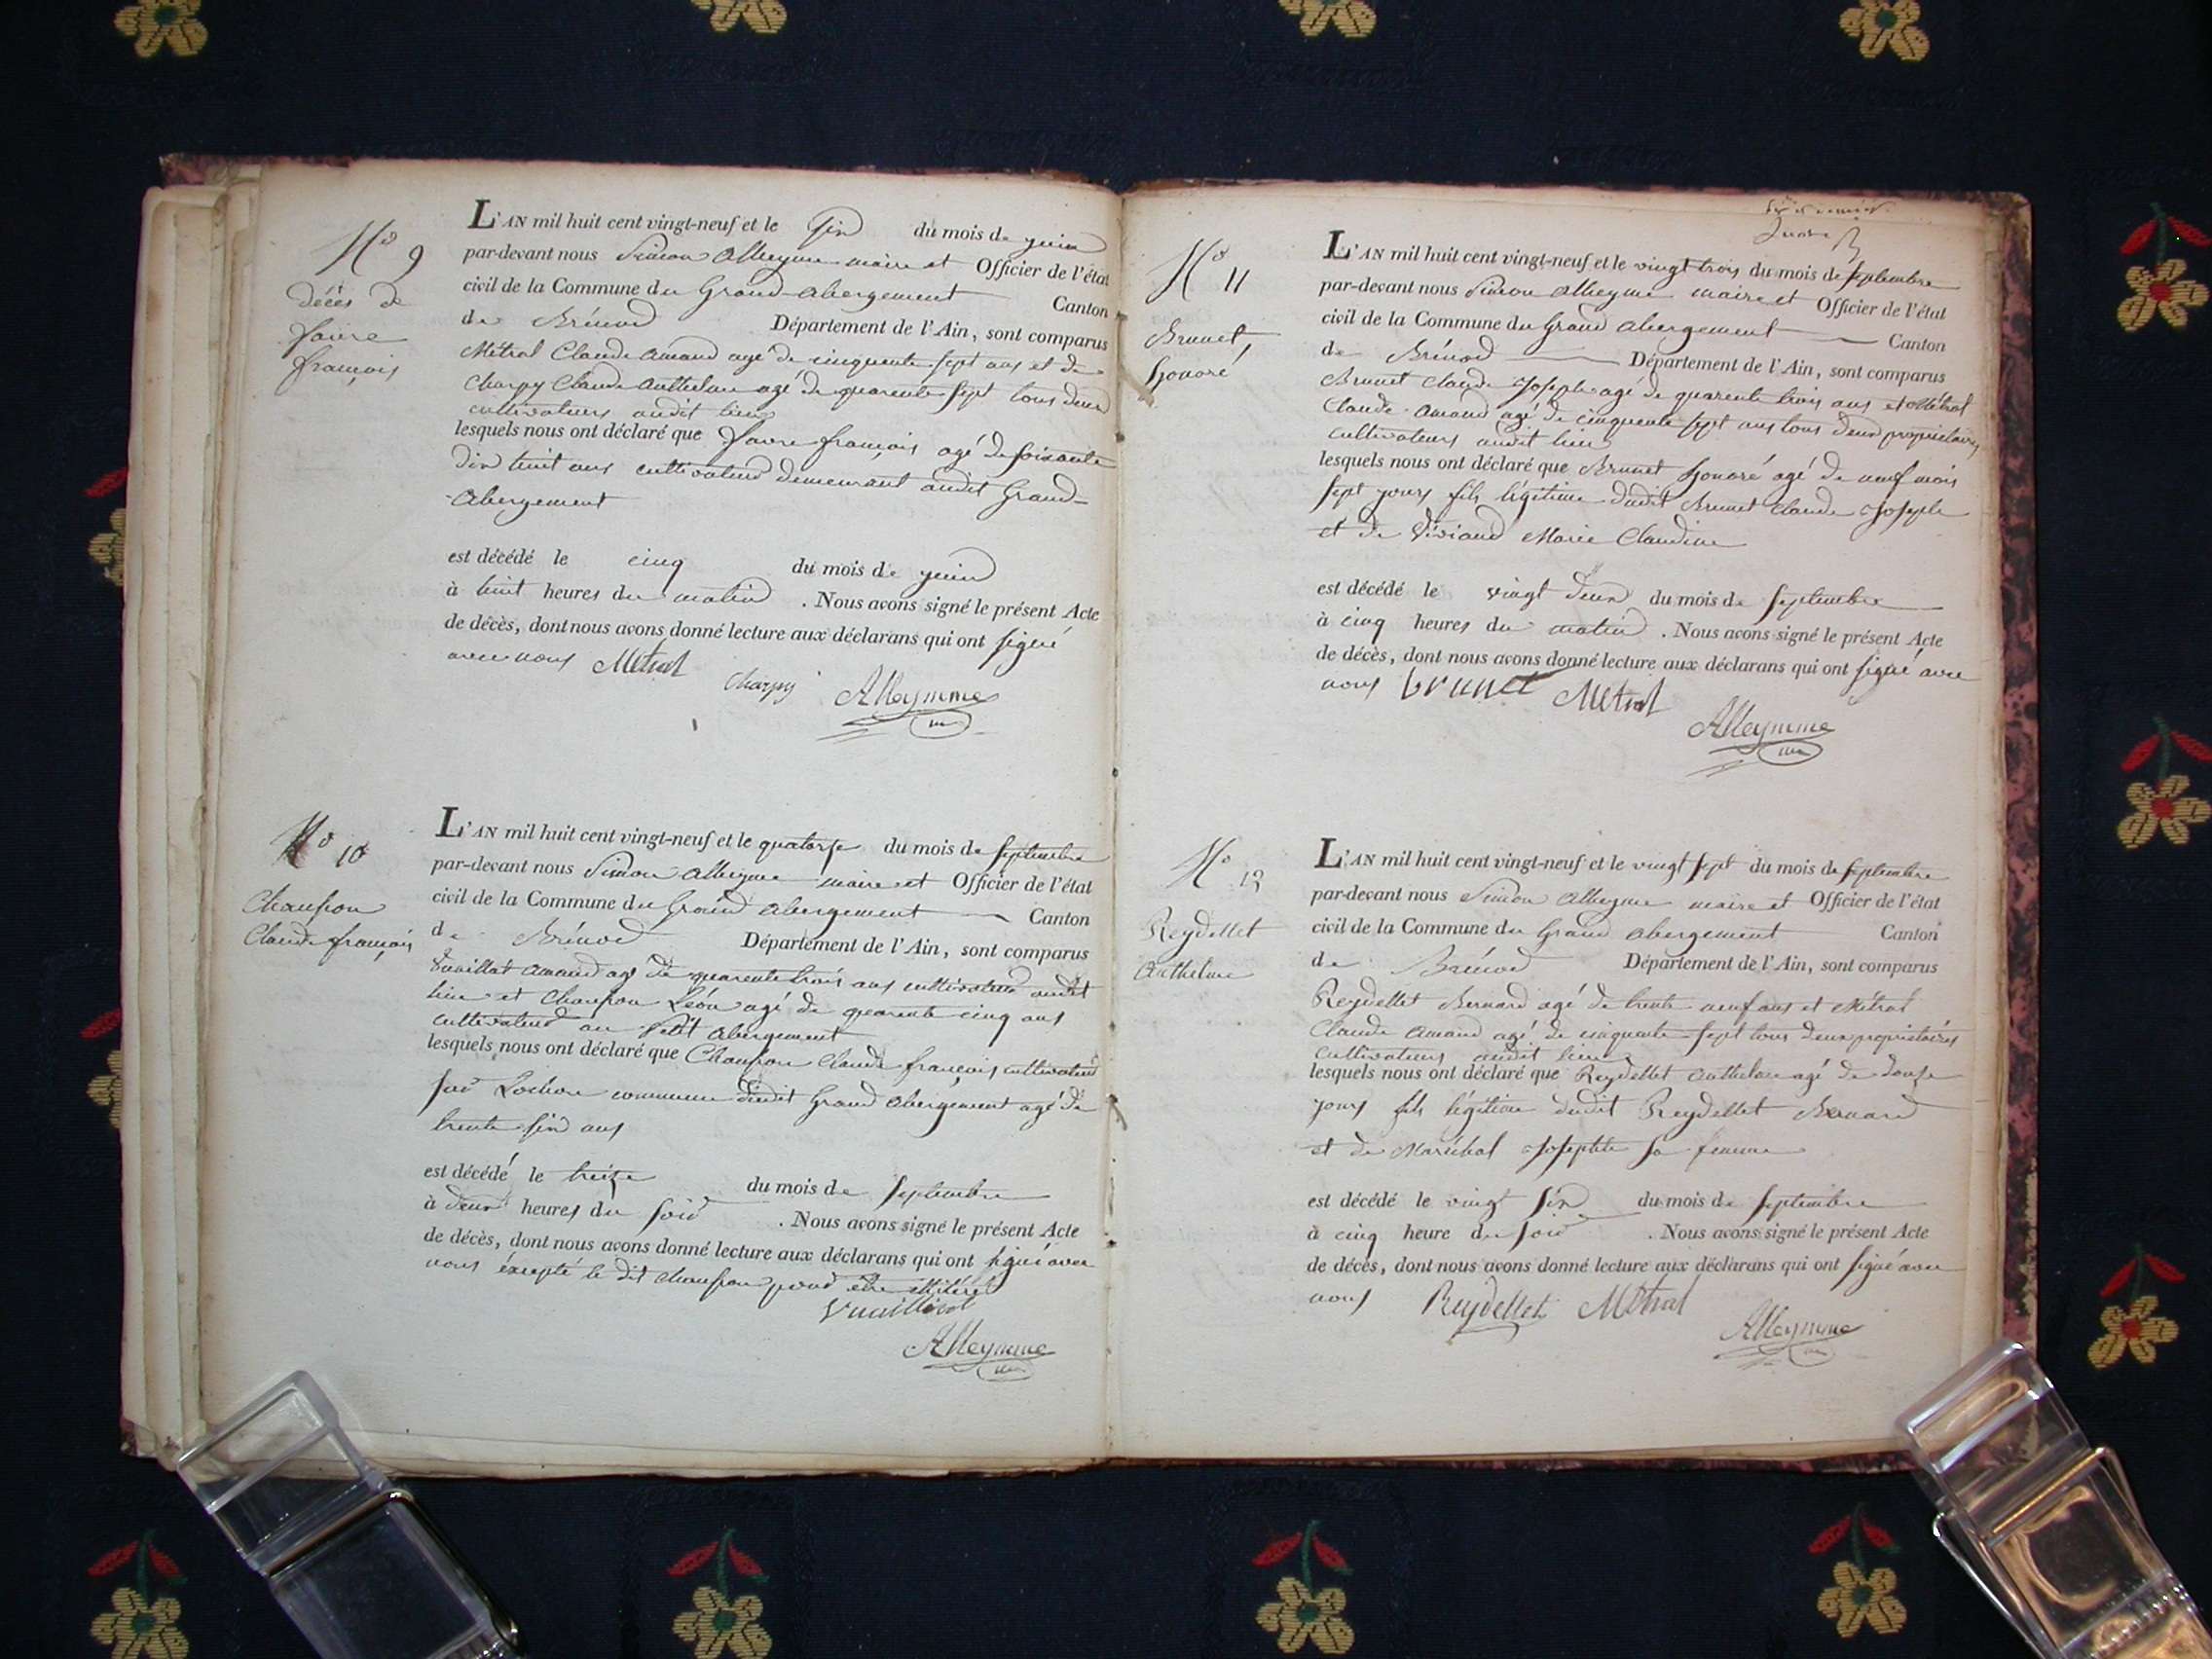 N.o 9
décès de
favre
françois
L'AN mil huit cent vingt-neuf et le six du mois de juin
par-devant nous Simon Alleyme maire et Officier de l'état
civil de la Commune du Grand-abergement Canton
de Brénod Département de l'Ain, sont comparus
Métral Claude Amand agé de cinquante sept ans et de
Charpy Claude Anthelme agé de quarente sept tous deux
cultivateurs audit lieu
lesquels nous ont déclaré que favre françois agé de soixante
dix huit ans cultivateur demeurant audit Grand-
Abergement
est décédé le cinq du mois de juin
à huit heures du matin . Nous avons signé le présent Acte
de décès, dont nous avons donné lecture aux déclarans qui ont signé
avec nous Métral Charpy Alleymme
N.o 10
Chanson
Claude françois
L'AN mil huit cent vingt-neuf et le quatorse du mois de septembre
par-devant nous Simon Alleyme maire et Officier de l'état
civil de la Commune du Grand abergement Canton
de Brénod Département de l'Ain, sont comparus
Vuaillat Amand agé de quarente trois ans cultivateur audit
lieu et Chanson Léon agé de quarente cinq ans
cultivateur au Petit Abergement
lesquels nous ont déclaré que Chanson Claude françois cultivateur
sur Lochon commune dudit Grand Abergement agé de
trente six ans
est décédé le treize du mois de septembre
à deux heures du soir . Nous avons signé le présent Acte
de décès, dont nous avons donné lecture aux déclarans qui ont signé avec
nous éxcepté le dit Chanson pour etre illitéré
Vuaillat
Alleymme
N.o 11
Brunet
honoré
L'AN mil huit cent vingt-neuf et le vingt trois du mois de septembre
par-devant nous Simon Alleyme maire et Officier de l'état
civil de la Commune du Grand abergement Canton
de Brénod Département de l'Ain, sont comparus
Brunet Claude Joseph agé de quarente trois ans et Métral
Claude Amand agé de cinquente sept ans tous deux propriétaires
cultivateurs audit lieu
lesquels nous ont déclaré que Brunet honoré agé de neuf mois
sept jours fils légitime dudit Brunet Claude Joseph
et de Viviand Marie Claudine
est décédé le vingt deux du mois de septembre
à cinq heures du matin . Nous avons signé le présent Acte
de décès, dont nous avons donné lecture aux déclarans qui ont signé avec
nous brunet Métral
Alleymme
N.o 12
Reydellet
Anthelme
L'AN mil huit cent vingt-neuf et le vingt sept du mois de septembre
par-devant nous Simon Alleyme maire et Officier de l'état
civil de la Commune du Grand abergement Canton
de Brénod Département de l'Ain, sont comparus
Reydellet Bernard agé de trente neuf ans et Métral
Claude Amand agé de cinquente sept tous deux propriétaires
cultivateurs audit lieu
lesquels nous ont déclaré que Reydellet Anthelme agé de douse
jours fils légitime dudit Reydellet Bernard
et de Maréchal Josephte sa femme
est décédé le vingt six du mois de septembre
à cinq heure du soir . Nous avons signé le présent Acte
de décès, dont nous avons donné lecture aux déclarans qui ont signé avec
nous Reydellet Métral
Alleymme